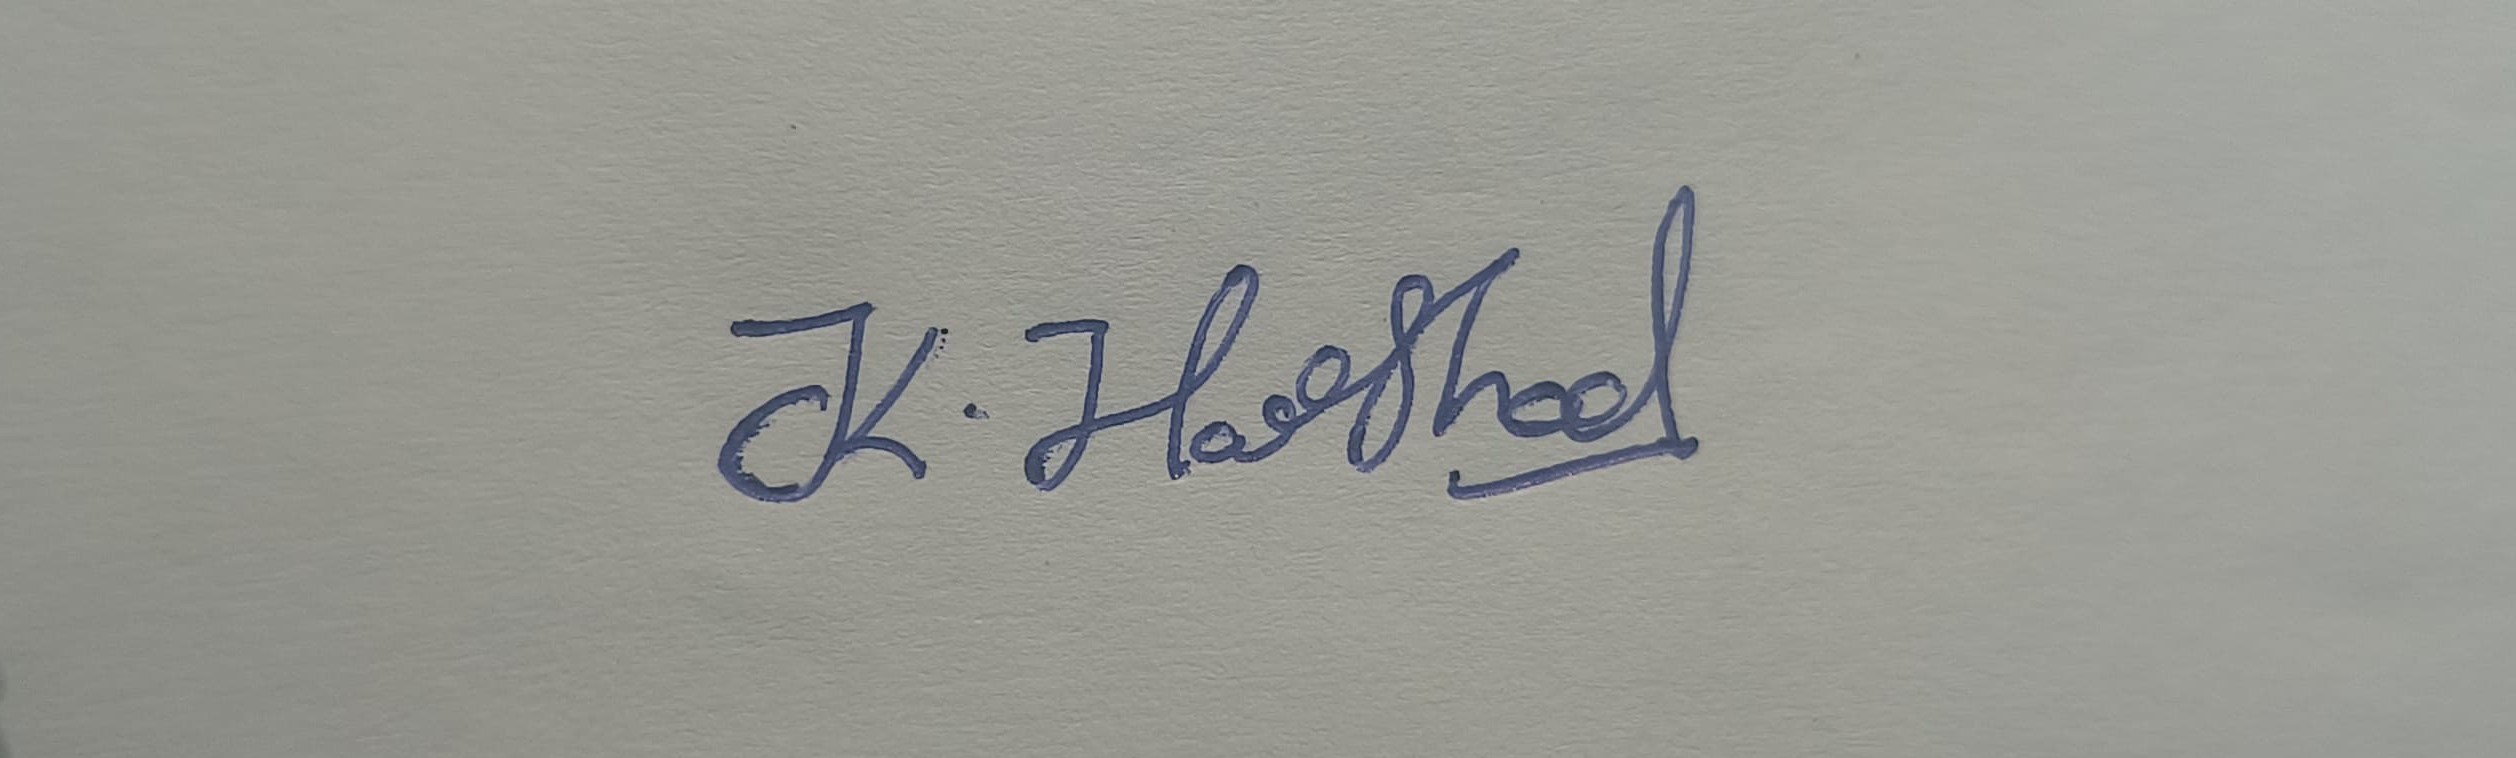 K. Harshad